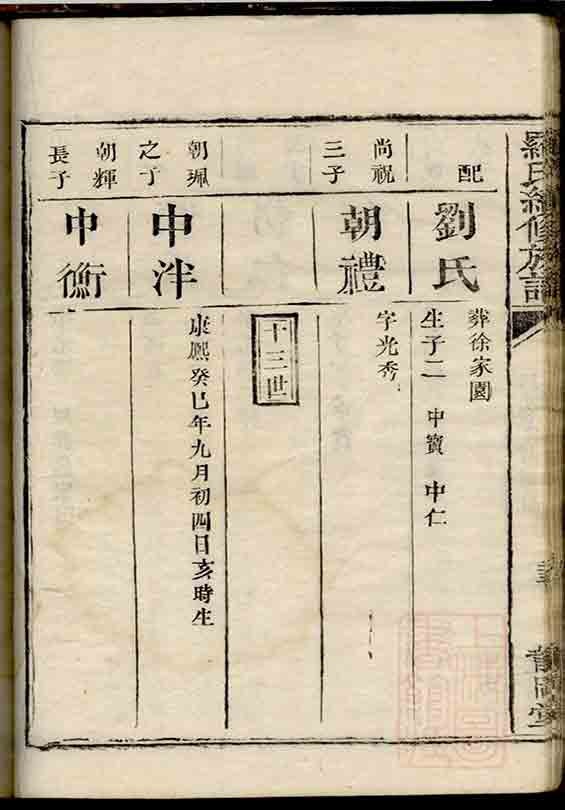 羅氏續修族譜
配
劉氏
葬徐家園
生子二 中寶 中仁
尚祝
三子
朝禮
字光秀
十三世
朝珮
之丁
中泮
康熙癸巳年九月初四日亥時生
朝輝
長子
中衡